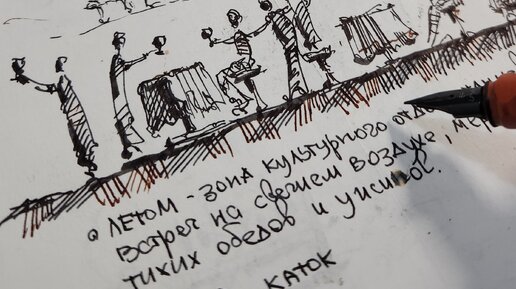 ЛЕТОМ - ЗОНА КУЛЬТУРНОГО
ВСТРЕЧ НА СВЕЖЕМ ВОЗДУХЕ,
ТИХИХ ОБЕДОВ И
КАТОК